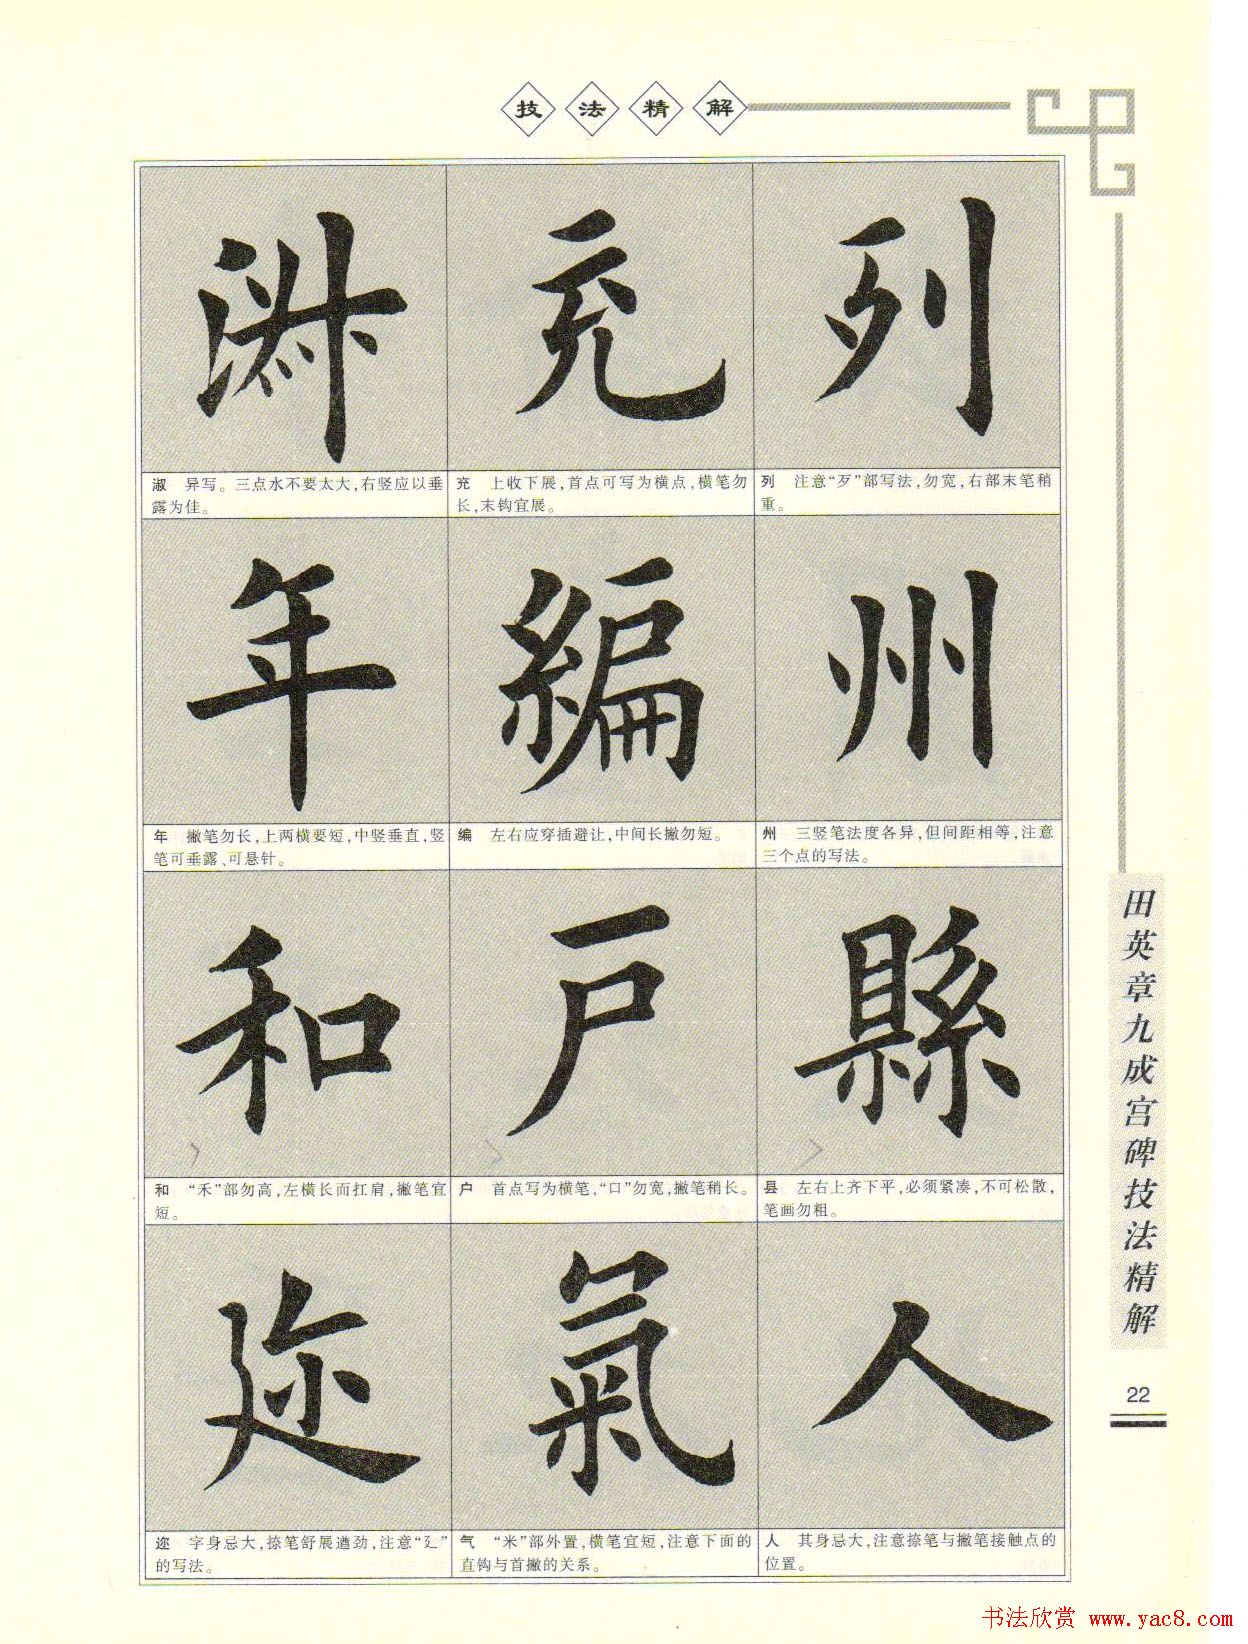 技法精解
淑 充 列
淑 异写。三点水不要太大,右竖应以垂
露为佳。
充 上收下展,首点可写为横点,横笔勿
长,末钩宜展。
列 注意“歹”部写法,勿宽,右部末笔稍
重。
年 編 州
年 撇笔勿长,上两横要短,中竖垂直,竖
笔可垂露、可悬针。
编 左右应穿插避让,中间长撇勿短。
州 三竖笔法度各异,但间距相等,注意
三个点的写法。
和 戸 縣
和 “禾”部勿高,左横长而扛肩,撇笔宜
短。
户 首点写为横笔,“口”勿宽,撇笔稍长。
县 左右上齐下平,必须紧凑,不可松散,
笔画勿粗。
迩 氣 人
迩 字身忌大,捺笔舒展遒劲,注意“辶”
的写法。
气 “米”部外置,横笔宜短,注意下面的
直钩与首撇的关系。
人 其身忌大,注意捺笔与撇笔接触点的
位置。
田英章九成宫碑技法精解
22
书法欣赏 www.yac8.com